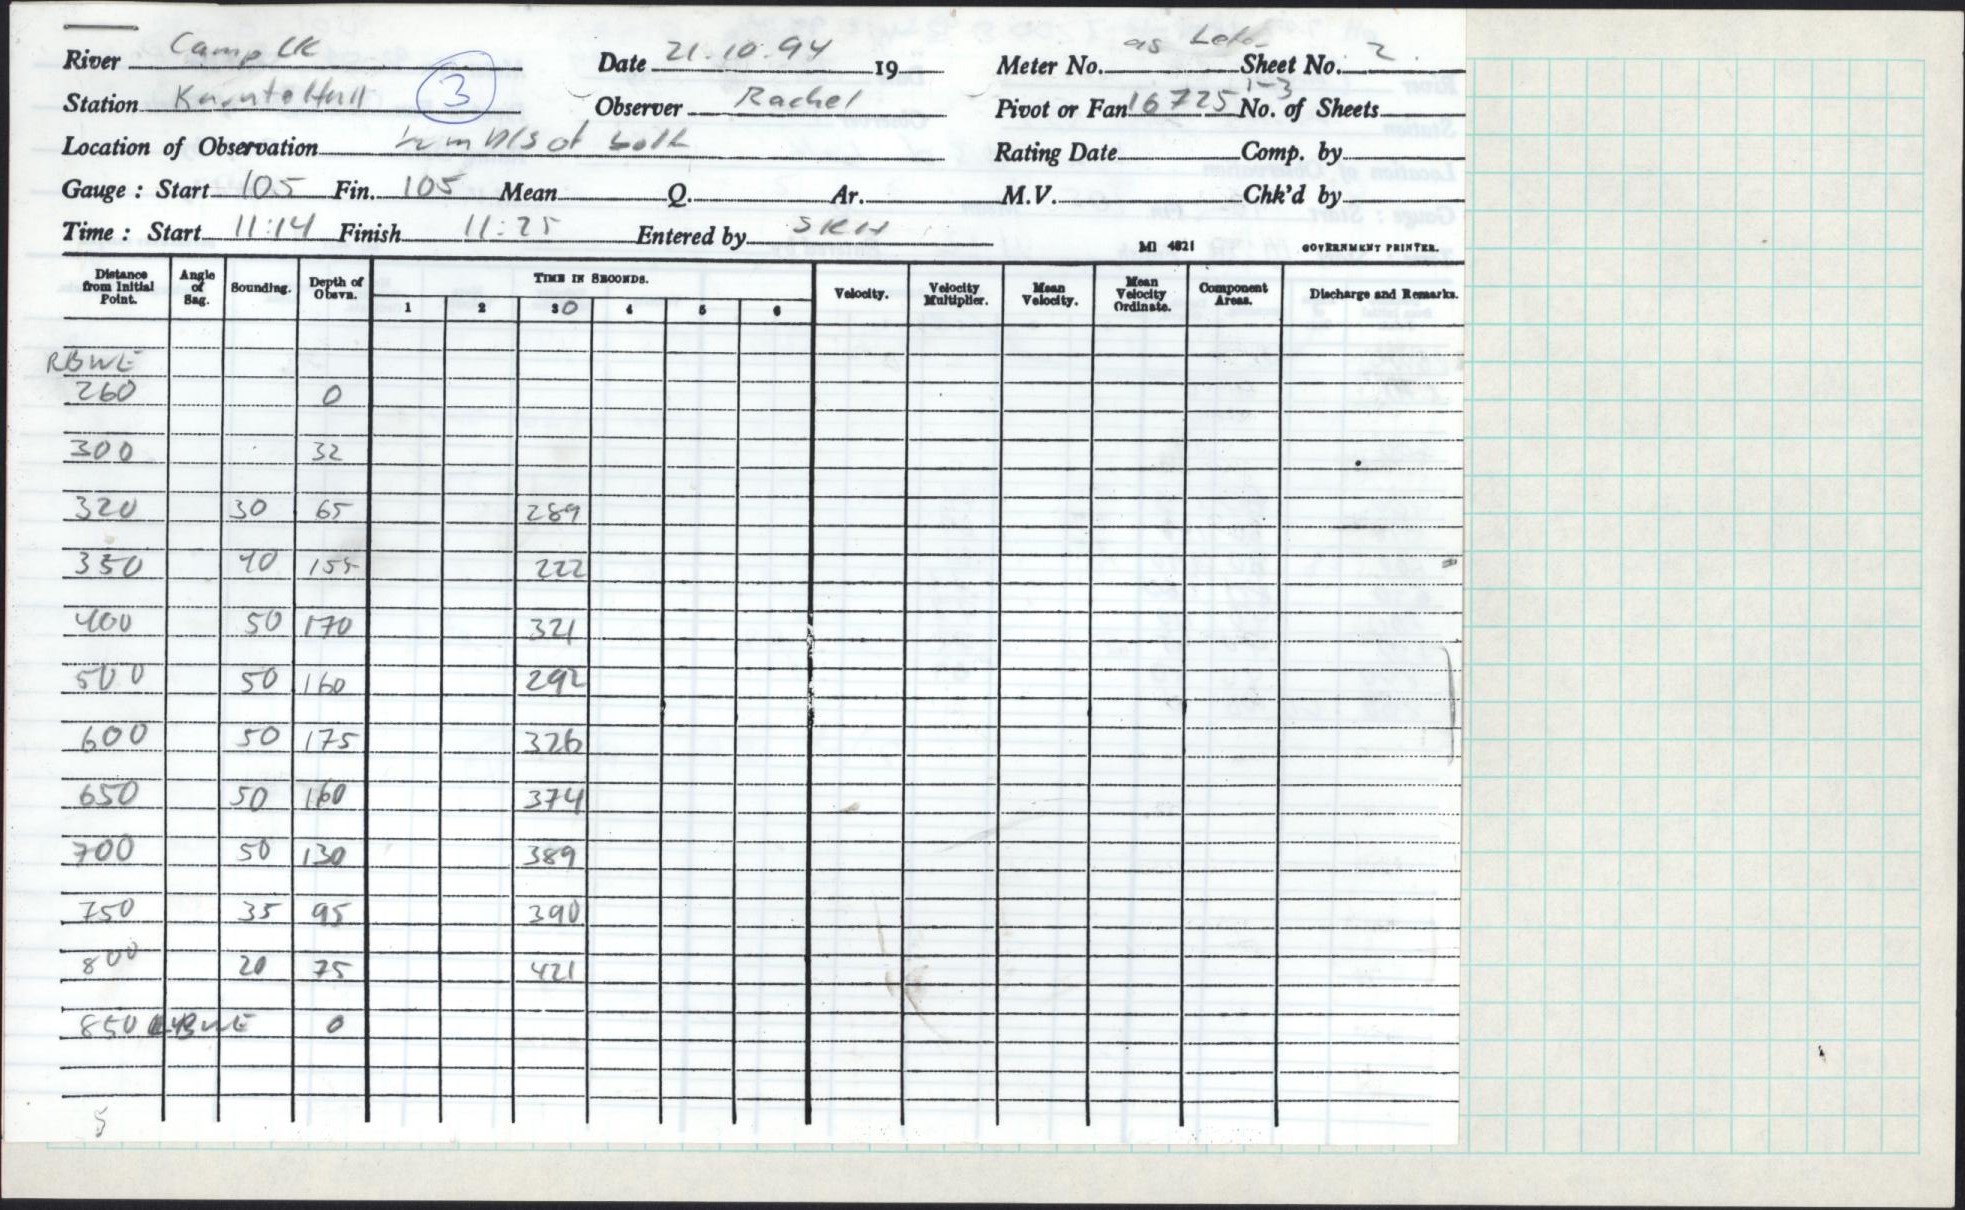 River Camp Ck Date 21.10.94 19 Meter No. as Sheet No. 2
Station 3 Observer Rachel Pivot or Fan 16725 1-3 No. of Sheets
Location of Observation D/S of Rating Date Comp. by
Gauge : Start 105 Fin. 105 Mean Q. Ar. M.V. Chk'd by
Time : Start 11:14 Finish 11:25 Entered by SKH MI 4821 GOVERNMENT PRINTER.
Distance from Initial Point. Angle of Sag. Sounding. Depth of Obsvn. TIME IN SECONDS. Velocity. Velocity Multiplier. Mean Velocity. Mean Velocity Ordinate. Component Areas. Discharge and Remarks.
1 2 30 4 5 6
RBWE
260 0
300 32
320 30 65 289
350 40 155 222
400 50 170 321
500 50 160 292
600 50 175 326
650 50 160 374
700 50 130 389
750 35 95 390
800 20 75 421
850 LBWE 0
5